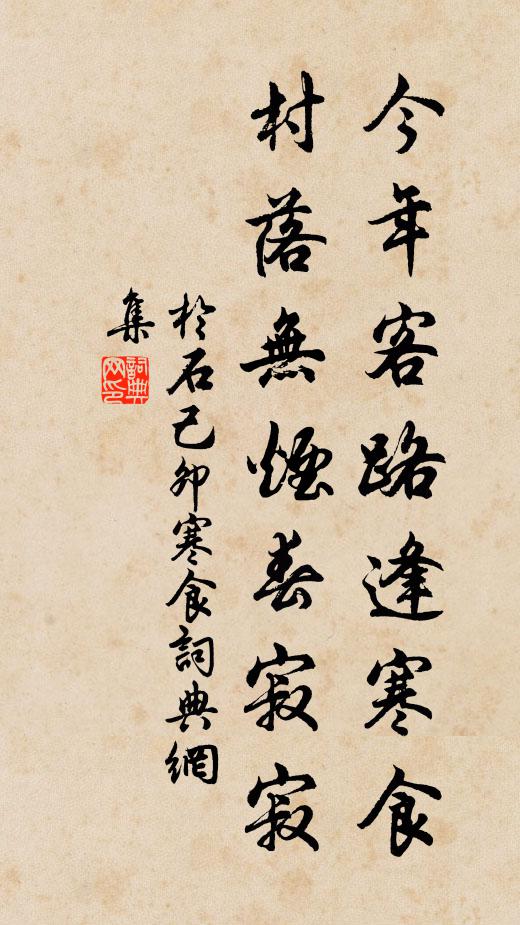 今年客路逢寒食
村落無煙春寂寂
於石己卯寒食詞典網
集
詞典
网印